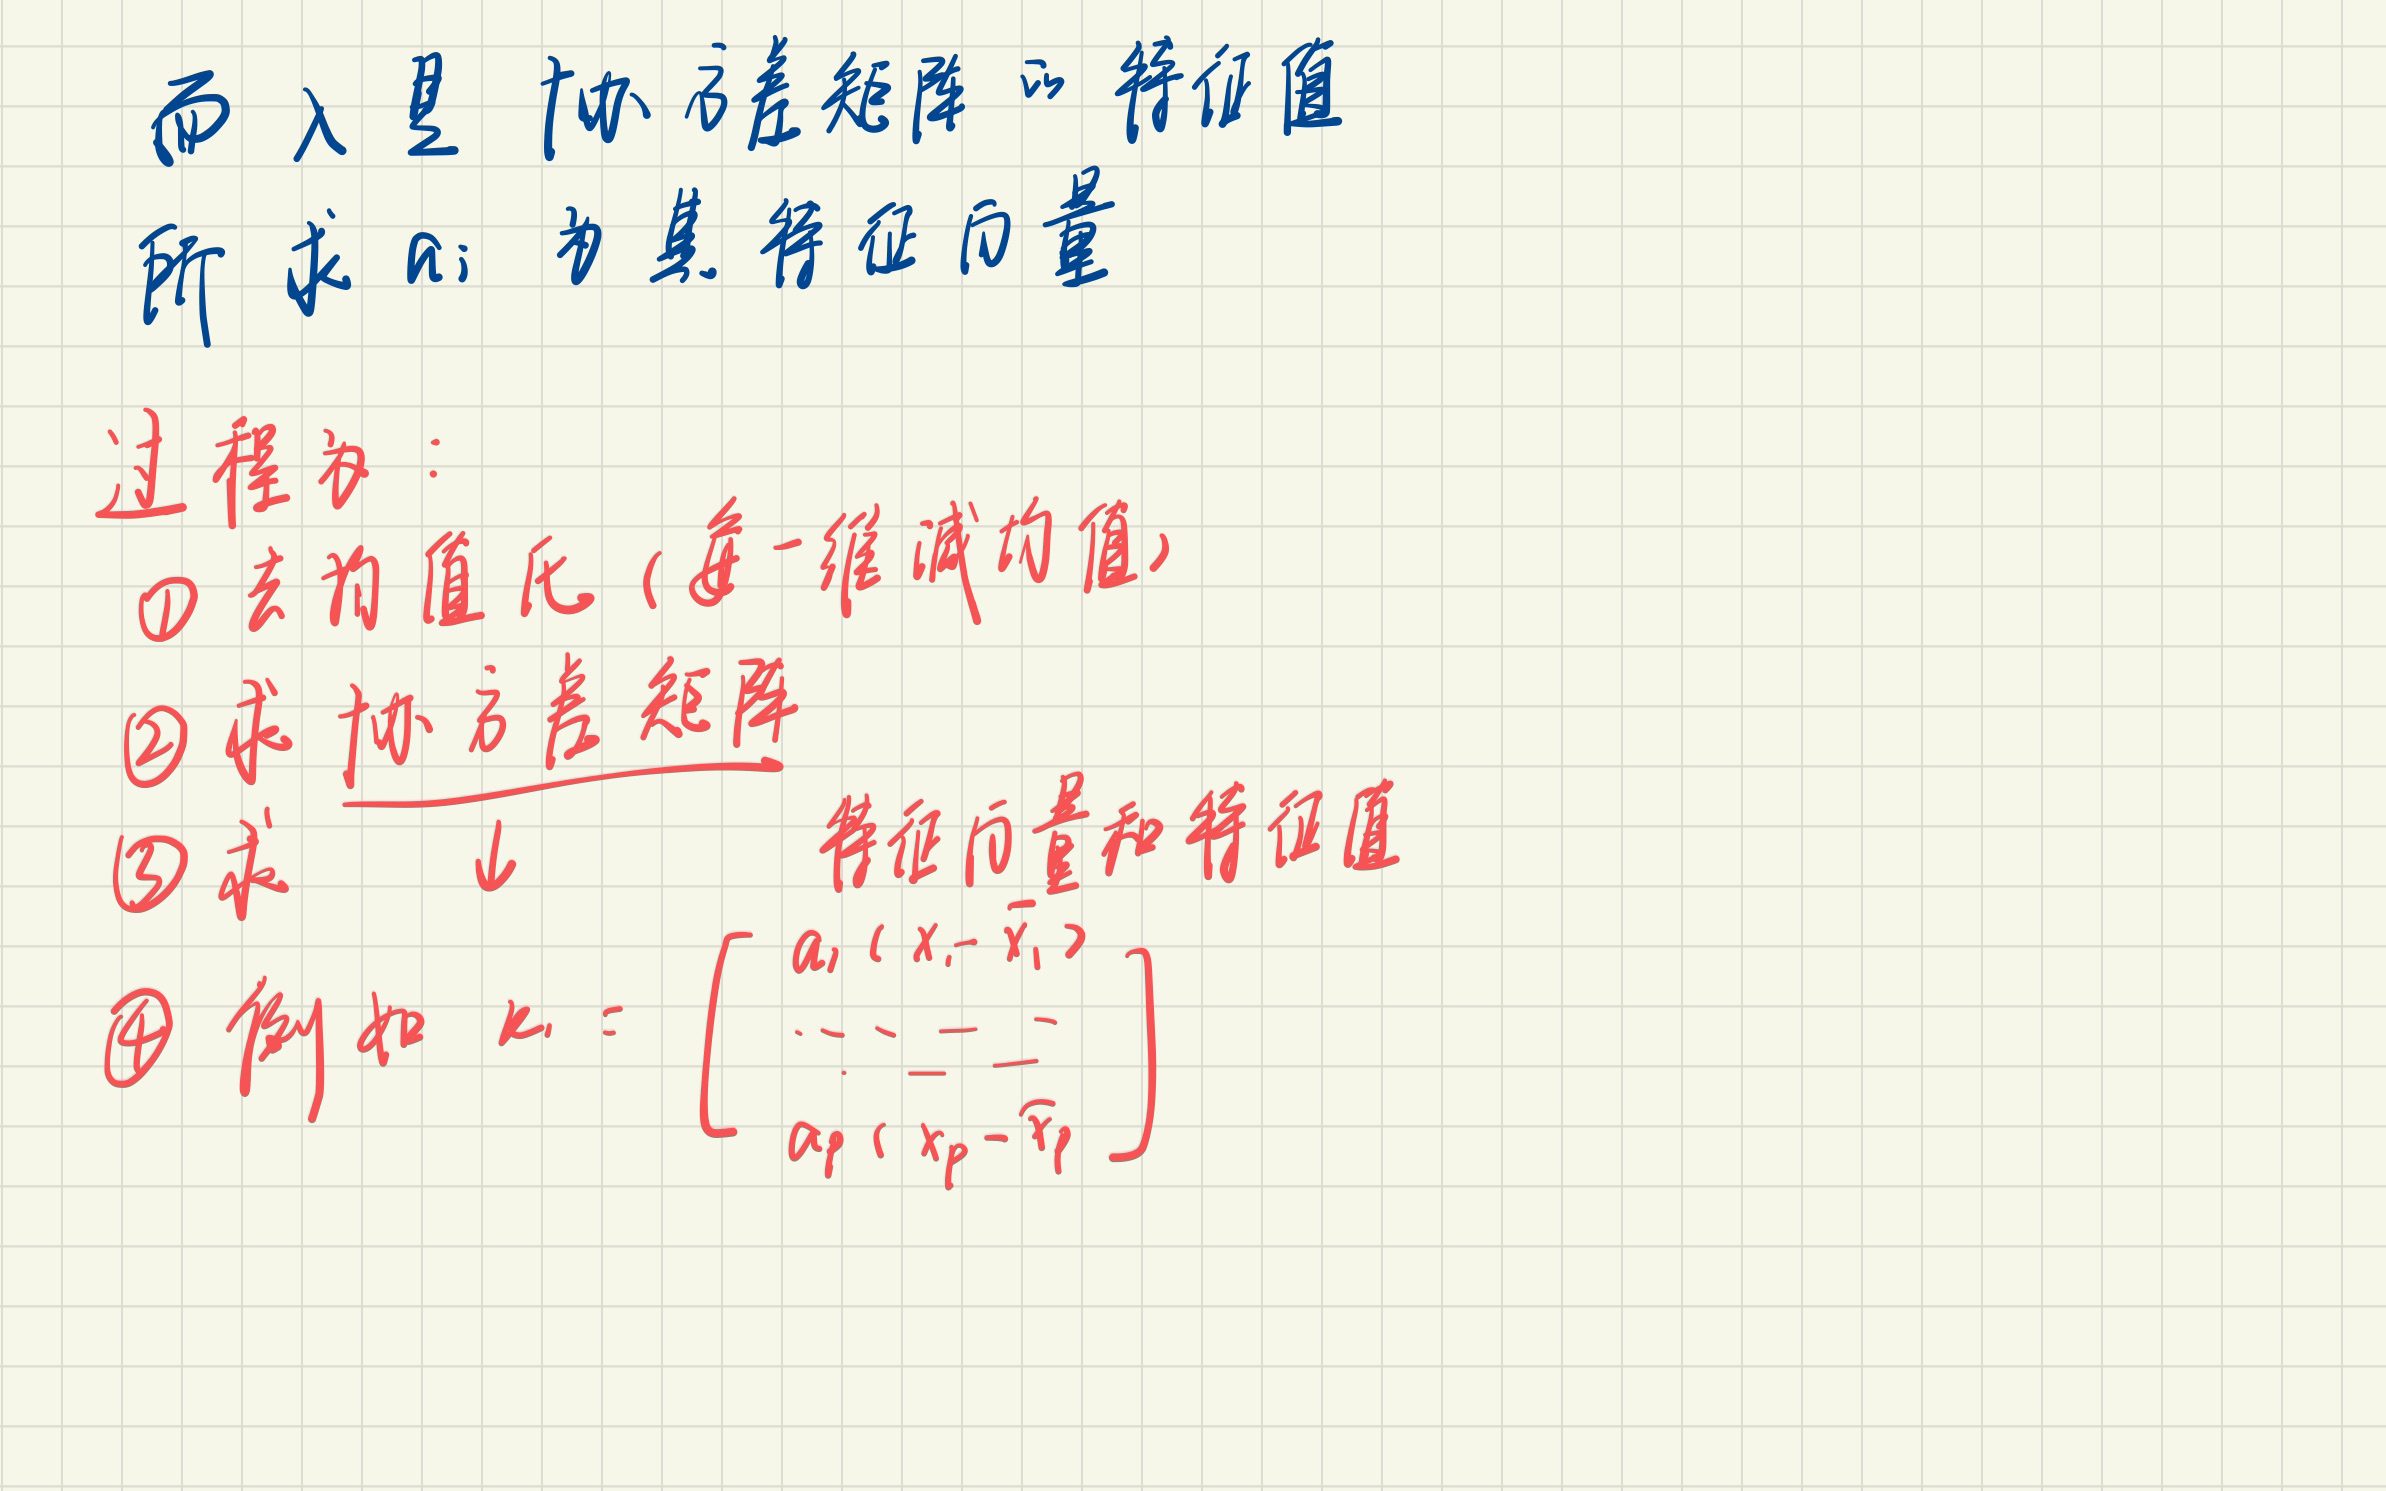 而λ是协方差矩阵的特征值
所求ai为其特征向量
过程为:
① 去均值化(每一维减均值)
② 求协方差矩阵
③ 求 ↓ 特征向量和特征值
④ 例如 z₁ = [ a₁(x₁-x̄₁)
ap(xp-x̄p ]